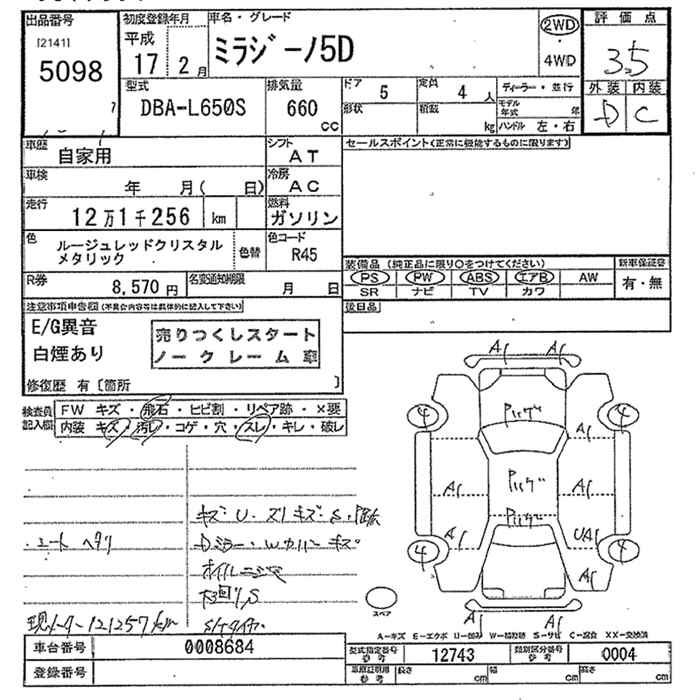 出品番号 初度登録年月 車名・グレード 2WD 評価点
[2141] 平成 ミラジーノ5D ・ 3.5
5098 17 2月 4WD
型式 排気量 ドア 5 定員 4人 ディーラー・並行 外装 内装
DBA-L650S 660 cc 形状 積載 kg モデル年式 年 D C
ハンドル 左・右
車歴 自家用 シフト AT セールスポイント(正常に機能するものに限ります)
車検 年 月( 日) 冷房 AC
走行 12万1千256 km 燃料 ガソリン
色 ルージュレッドクリスタルメタリック 色替 色コード R45
装備品 (純正品に限り○をつけてください) 新車保証書
R券 8,570円 名変通知期限 月 日 PS PW ABS エアB AW 有・無
SR ナビ TV カワ
注意事項申告欄(不具合内容等は具体的に記入して下さい) 後日品
E/G異音 売りつくしスタート
白煙あり ノークレーム車
修復歴 有〔箇所 〕
検査員 FW キズ・飛石・ヒビ割・リペア跡・×要
記入欄 内装 キズ・汚レ・コゲ・穴・スレ・キレ・破レ
A1 A1
4 4
A1
A1 A1
A1 UA1
4 4
A1
A1 A1
キズ U
シートヘタリ Dミラー・Wカバーキズ
オイルニジミ
下回りS
現メーター121257km Sタイヤ
スペア
A-キズ E-エクボ U-凹み W-補修跡 S-サビ C-腐食 XX-交換済
車台番号 0008684 型式指定番号 参考 12743 類別区分番号 参考 0004
登録番号 車庫証明用 参考 長さ cm 幅 cm 高さ cm